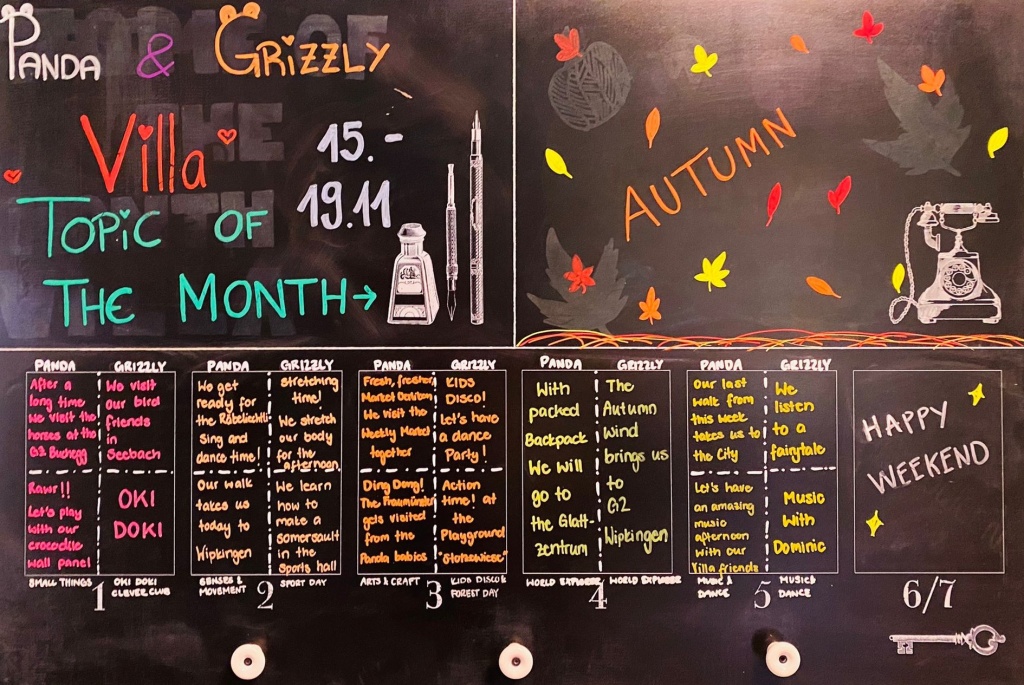 PANDA & GRIZZLY
Villa
15.-
19.11
TOPIC OF
THE MONTH→
AUTUMN
PANDA
After a
long time
we visit the
horses at the
G2 Buchegg
Rawr!!
Let's play
with our
crocodile
wall panel
SMALL THINGS
GRIZZLY
We visit
our bird
friends
in
Seebach
OKI
DOKI
OKI DOKI
CLEVER CLUB
1
PANDA
We get
ready for
the Räbeliechtli
Sing and
dance time!
Our walk
takes us
today to
Wipkingen
SENSES &
MOVEMENT
GRIZZLY
stretching
time!
We stretch
our body
for the
afternoon.
We learn
how to
make a
somersault
in the
Sports hall
SPORT DAY
2
PANDA
Fresh, fresher,
Market
We visit the
Weekly Market
together
Ding Dong!
The Fraumünster
gets visited
from the
Panda babies
ARTS & CRAFT
GRIZZLY
KIDS
DISCO!
Let's have
a dance
Party!
Action
time! at
the
Playground
"Stolzewiese"
KIDS DISCO &
FOREST DAY
3
PANDA
With
packed
Backpack
We will
go to
the Glatt-
zentrum
WORLD EXPLORER
GRIZZLY
The
Autumn
wind
brings us
to
G2
Wipkingen
WORLD EXPLORER
4
PANDA
Our last
walk from
this week
takes us to
the City
Let's have
an amazing
music
afternoon
with our
Villa friends
MUSIC &
DANCE
GRIZZLY
We
listen
to a
fairytale
Music
with
Dominic
MUSIC &
DANCE
5
HAPPY
WEEKEND
6/7